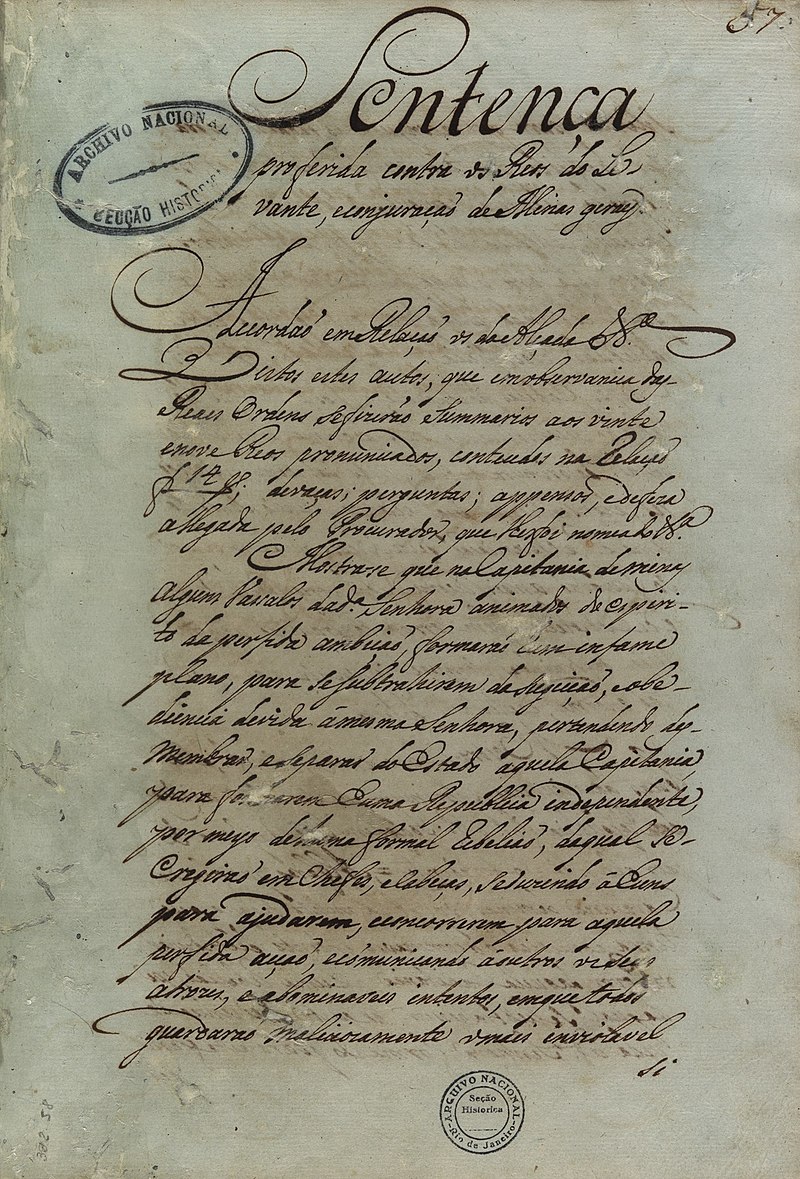 57.
Sentença
proferida contra os Reos do Le-
vante, e conjuração de Minas geraes.
ARCHIVO NACIONAL
SECÇÃO HISTORICA
Accordaõ em Relaçaõ os da Alçada &c.ª
Vistos estes autos, que em observancia das
Reaes Ordens se fizeraõ Summarios aos vinte
e nove Reos pronunciados, conteudos na Relaçaõ
f 14 ; devaças; perguntas; appensos, e defeza
allegada pelo Procurador, que lhe foi nomeado &.ª
Mostra-se que na Capitania de minas
alguns Vassalos da d.ª Senhora animados do espiri-
to da perfida ambiçaõ, formaraõ hum infame
plano, para se subtrahirem da sugeiçaõ, e obe-
diencia devida á mesma Senhora, pertendendo des-
membrar, e separar do Estado aquela Capitania,
para formarem huma Republica independente,
por meyo de huma formal rebeliaõ, da qual se
erigiraõ em Chefes, e cabeças, seduzindo á huns
para ajudarem, e concorrerem para aquela
perfida açaõ, e comunicando á outros os seus
atrozes, e abominaveis intentos, em que todos
guardaraõ maliciosamente o mais inviolavel
si
ARCHIVO NACIONAL
Seção
Historica
Rio de Janeiro
302-58